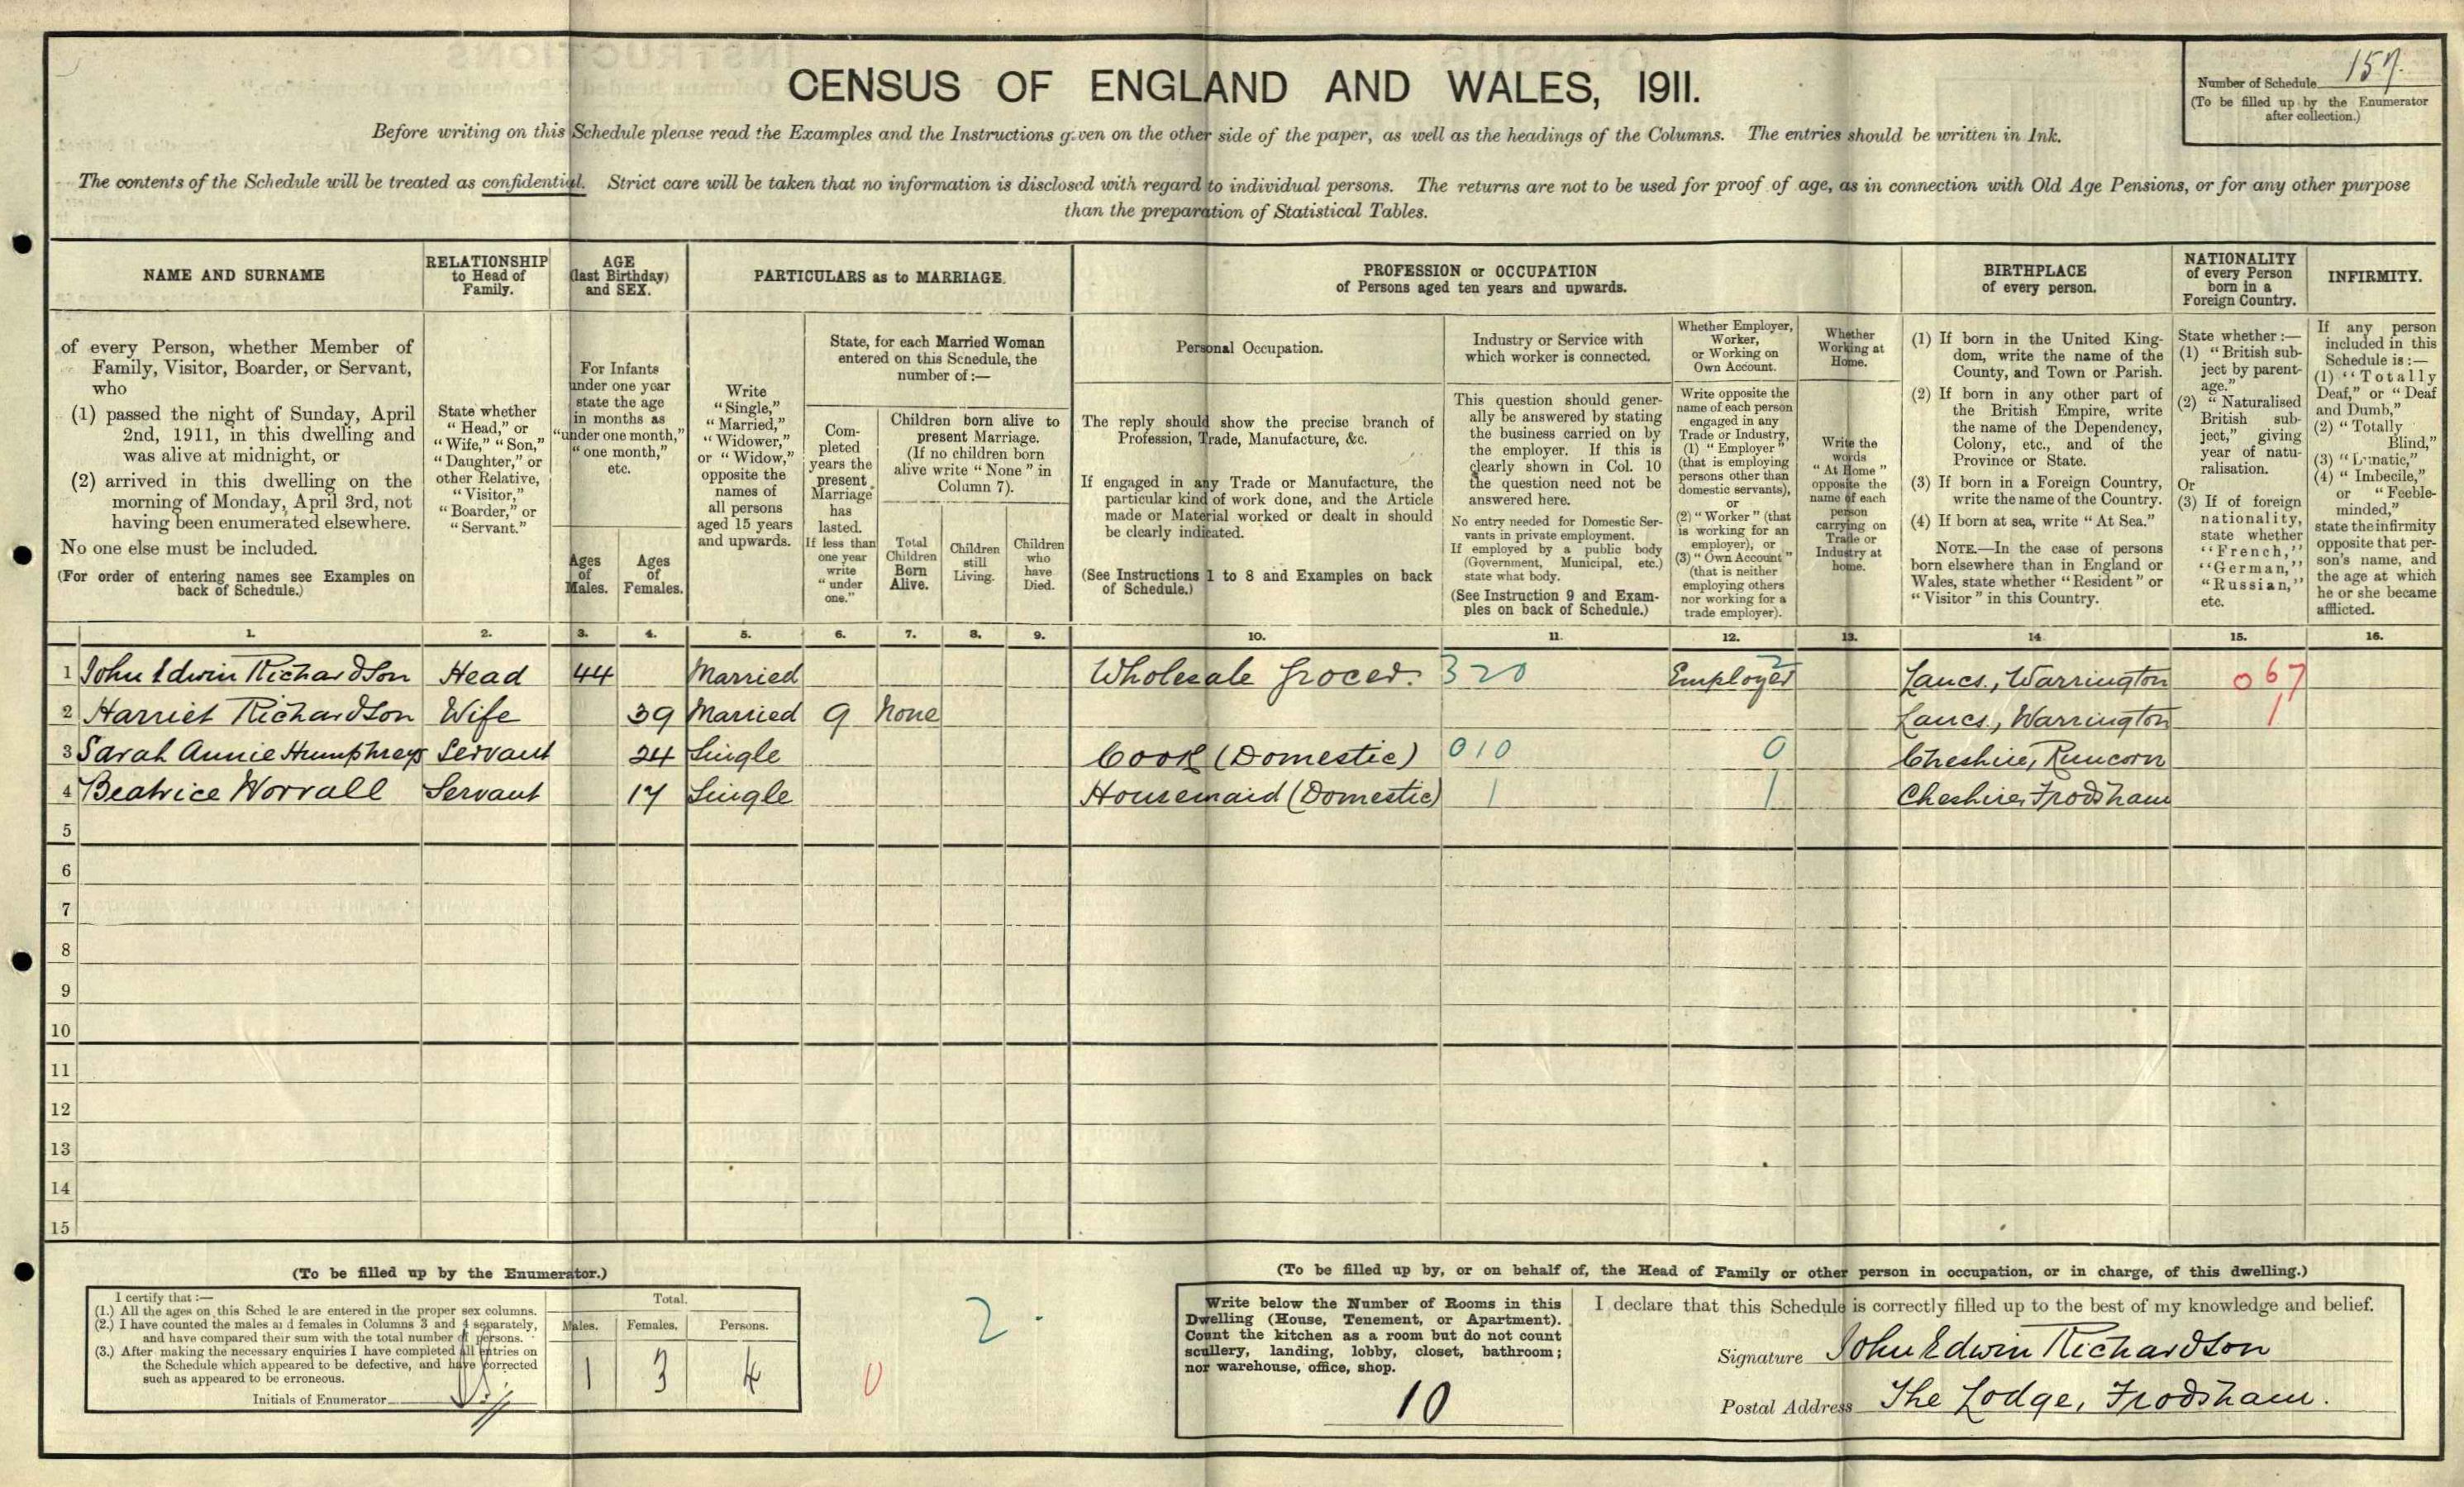 CENSUS OF ENGLAND AND WALES, 1911.
Number of Schedule 157.
(To be filled up by the Enumerator
after collection.)
Before writing on this Schedule please read the Examples and the Instructions given on the other side of the paper, as well as the headings of the Columns. The entries should be written in Ink.
The contents of the Schedule will be treated as confidential. Strict care will be taken that no information is disclosed with regard to individual persons. The returns are not to be used for proof of age, as in connection with Old Age Pensions, or for any other purpose
than the preparation of Statistical Tables.
NAME AND SURNAME
of every Person, whether Member of
Family, Visitor, Boarder, or Servant,
who
(1) passed the night of Sunday, April
2nd, 1911, in this dwelling and
was alive at midnight, or
(2) arrived in this dwelling on the
morning of Monday, April 3rd, not
having been enumerated elsewhere.
No one else must be included.
(For order of entering names see Examples on
back of Schedule.)
RELATIONSHIP
to Head of
Family.
State whether
"Head," or
"Wife," "Son,"
"Daughter," or
other Relative,
"Visitor,"
"Boarder," or
"Servant."
AGE
(last Birthday)
and SEX.
For Infants
under one year
state the age
in months as
"under one month,"
"one month,"
etc.
Ages
of
Males.
Ages
of
Females.
PARTICULARS as to MARRIAGE.
Write
"Single,"
"Married,"
"Widower,"
or "Widow,"
opposite the
names of
all persons
aged 15 years
and upwards.
State, for each Married Woman
entered on this Schedule, the
number of :—
Com-
pleted
years the
present
Marriage
has
lasted.
If less than
one year
write
"under
one."
Children born alive to
present Marriage.
(If no children born
alive write "None" in
Column 7).
Total
Children
Born
Alive.
Children
still
Living.
Children
who
have
Died.
PROFESSION or OCCUPATION
of Persons aged ten years and upwards.
Personal Occupation.
The reply should show the precise branch of
Profession, Trade, Manufacture, &c.
If engaged in any Trade or Manufacture, the
particular kind of work done, and the Article
made or Material worked or dealt in should
be clearly indicated.
(See Instructions 1 to 8 and Examples on back
of Schedule.)
Industry or Service with
which worker is connected.
This question should gener-
ally be answered by stating
the business carried on by
the employer. If this is
clearly shown in Col. 10
the question need not be
answered here.
No entry needed for Domestic Ser-
vants in private employment.
If employed by a public body
(Government, Municipal, etc.)
state what body.
(See Instruction 9 and Exam-
ples on back of Schedule.)
Whether Employer,
Worker,
or Working on
Own Account.
Write opposite the
name of each person
engaged in any
Trade or Industry,
(1) "Employer"
(that is employing
persons other than
domestic servants),
or
(2) "Worker" (that
is working for an
employer), or
(3) "Own Account"
(that is neither
employing others
nor working for a
trade employer).
Whether
Working at
Home.
Write the
words
"At Home"
opposite the
name of each
person
carrying on
Trade or
Industry at
home.
BIRTHPLACE
of every person.
(1) If born in the United King-
dom, write the name of the
County, and Town or Parish.
(2) If born in any other part of
the British Empire, write
the name of the Dependency,
Colony, etc., and of the
Province or State.
(3) If born in a Foreign Country,
write the name of the Country.
(4) If born at sea, write "At Sea."
NOTE.—In the case of persons
born elsewhere than in England or
Wales, state whether "Resident" or
"Visitor" in this Country.
NATIONALITY
of every Person
born in a
Foreign Country.
State whether :—
(1) "British sub-
ject by parent-
age."
(2) "Naturalised
British sub-
ject," giving
year of natu-
ralisation.
Or
(3) If of foreign
nationality,
state whether
"French,"
"German,"
"Russian,"
etc.
INFIRMITY.
If any person
included in this
Schedule is :—
(1) "Totally
Deaf," or "Deaf
and Dumb,"
(2) "Totally
Blind,"
(3) "Lunatic,"
(4) "Imbecile,"
or "Feeble-
minded,"
state the infirmity
opposite that per-
son's name, and
the age at which
he or she became
afflicted.
1. 2. 3. 4. 5. 6. 7. 8. 9. 10. 11. 12. 13. 14. 15. 16.
1 John Edwin Richardson Head 44 Married Wholesale Grocer. 320 Employer 2 Lancs., Warrington 067
2 Harriet Richardson Wife 39 Married 9 None Lancs., Warrington 1
3 Sarah Annie Humphreys Servant 24 Single Cook (Domestic) 010 0 Cheshire, Runcorn
4 Beatrice Worrall Servant 17 Single Housemaid (Domestic) 1 1 Cheshire, Frodsham
5
6
7
8
9
10
11
12
13
14
15
(To be filled up by the Enumerator.)
I certify that :—
(1.) All the ages on this Sched le are entered in the proper sex columns.
(2.) I have counted the males a d females in Columns 3 and 4 separately,
and have compared their sum with the total number of persons.
(3.) After making the necessary enquiries I have completed all entries on
the Schedule which appeared to be defective, and have corrected
such as appeared to be erroneous.
Initials of Enumerator
Total.
Males. Females. Persons.
1 3 4
0
2
(To be filled up by, or on behalf of, the Head of Family or other person in occupation, or in charge, of this dwelling.)
Write below the Number of Rooms in this
Dwelling (House, Tenement, or Apartment).
Count the kitchen as a room but do not count
scullery, landing, lobby, closet, bathroom;
nor warehouse, office, shop.
10
I declare that this Schedule is correctly filled up to the best of my knowledge and belief.
Signature John Edwin Richardson
Postal Address The Lodge, Frodsham.